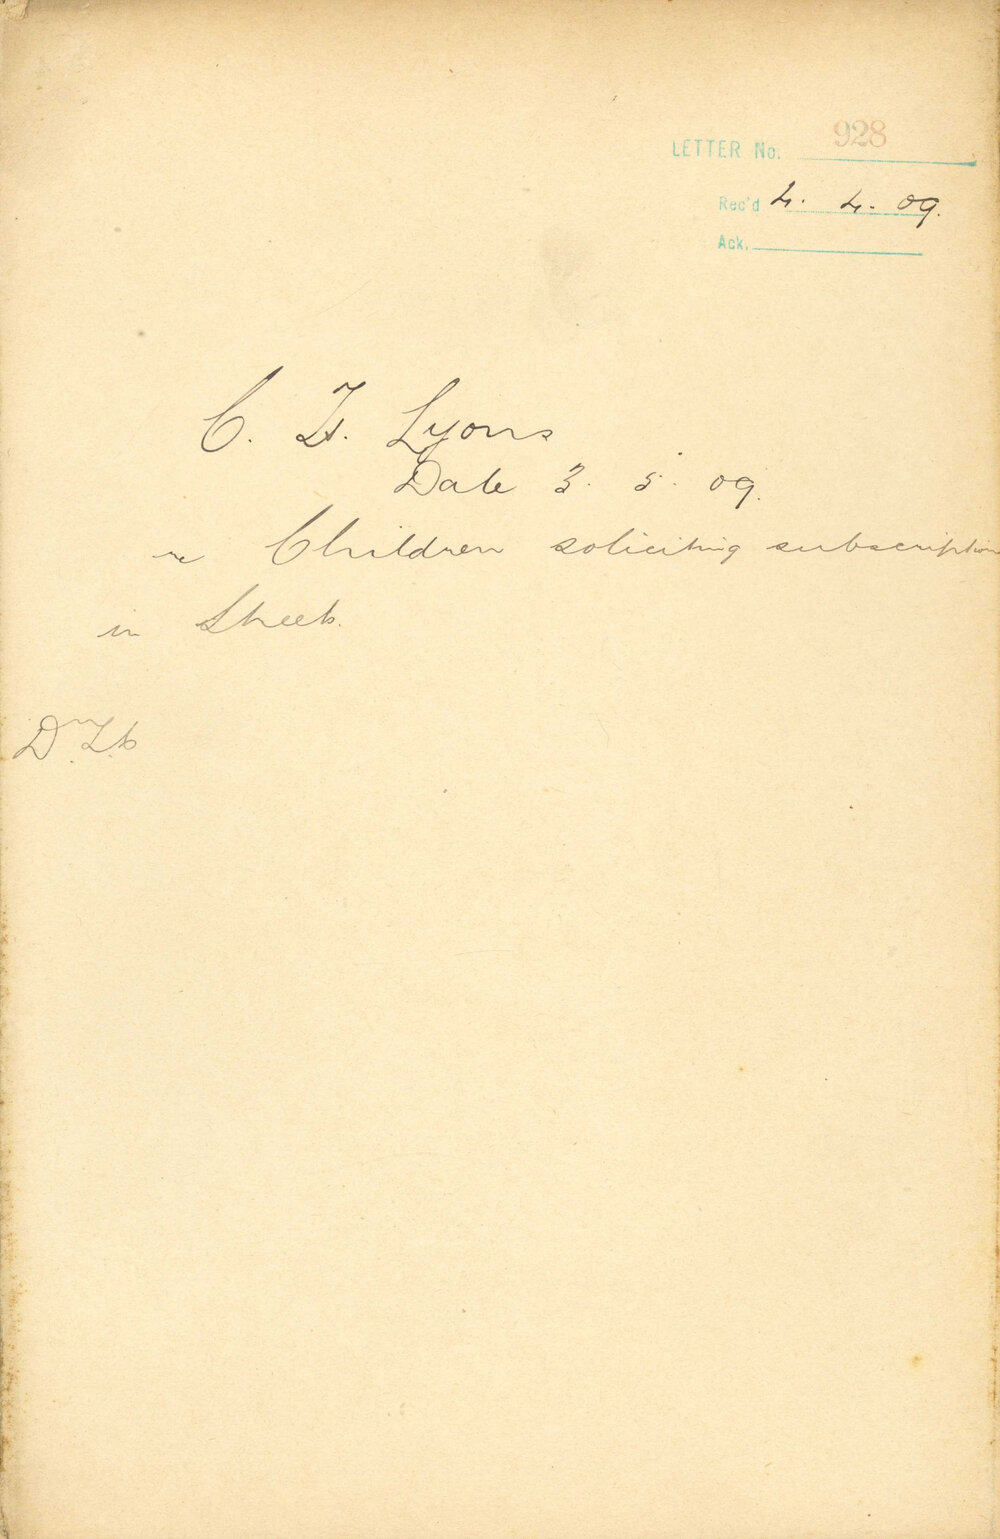 LETTER No. 928
Rec'd 4. 4. 09.
Ack.
C. F. Lyons
Date 3. 5. 09.
re Children soliciting subscription
in Street.